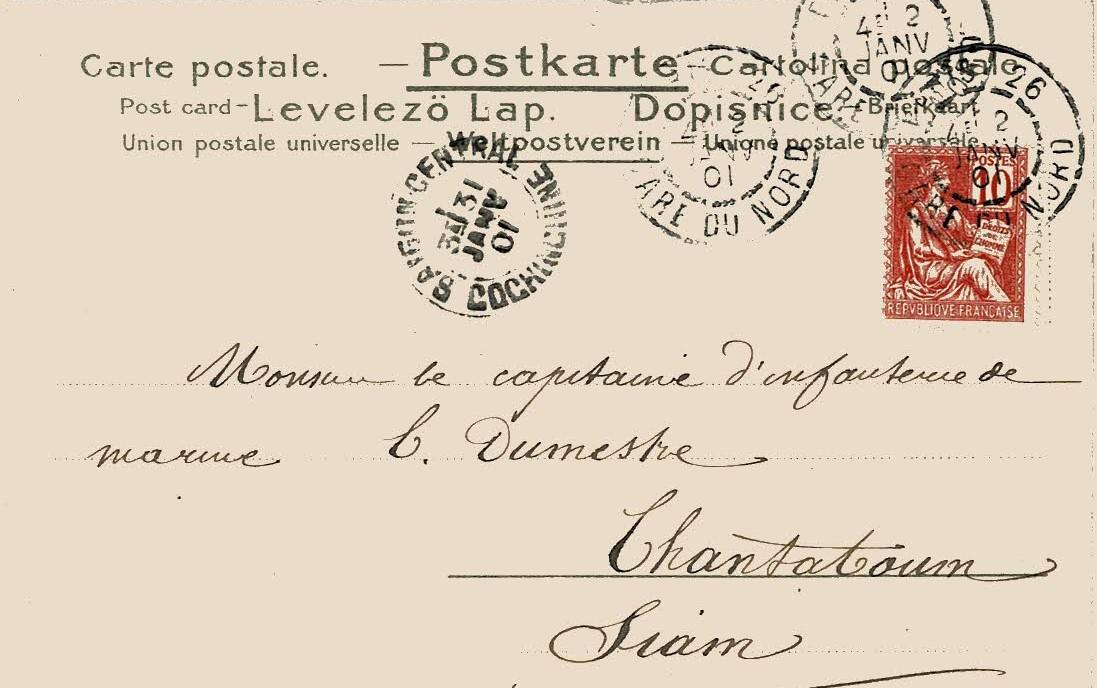 Carte postale. — Postkarte — Cartolina postale
Post card - Levelezö Lap. Dopisnice. - Briefkaart
Union postale universelle — Weltpostverein — Unione postale universale
SAIGON-CENTRAL COCHINCHINE
3E/31
JANV
01
2
JANV
01
GARE DU NORD
4E 2
JANV
01
GARE
26
4E 2
JANV
01
GARE DU NORD
POSTES
10
DROITS
DE
L'HOMME
REPVBLIQVE FRANÇAISE
Monsieur le capitaine d'infanterie de
marine C. Dumestre
Chantaboum
Siam